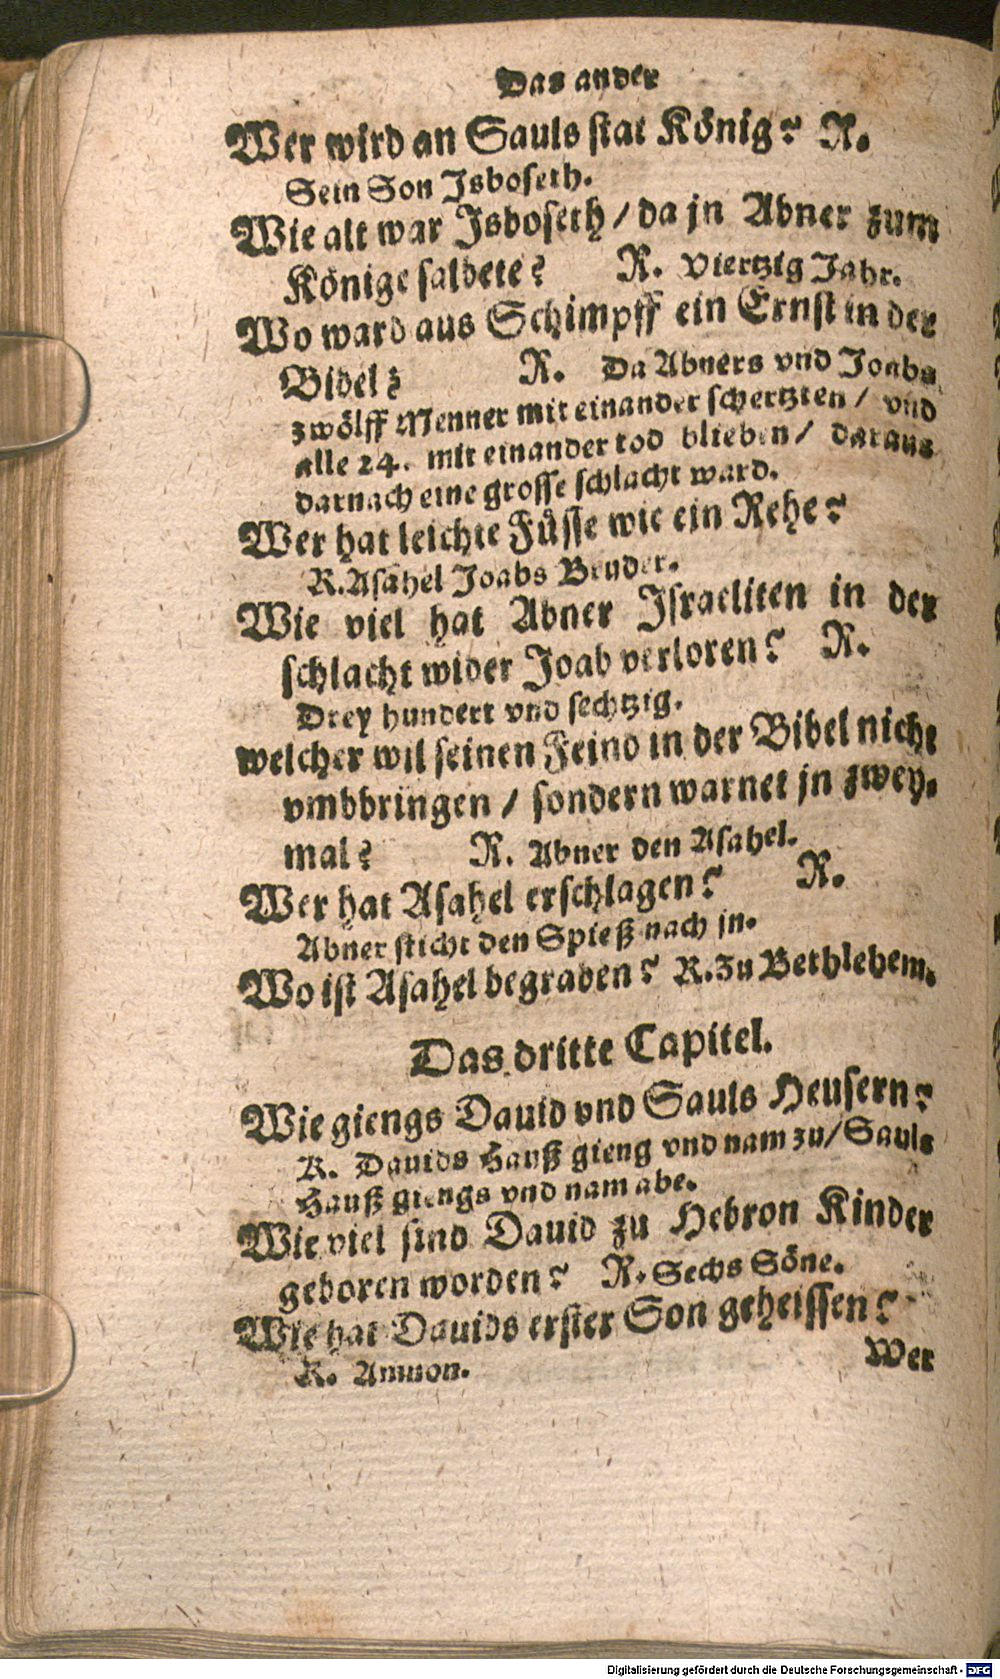 Das ander
Wer wird an Sauls stat König? R.
Sein Son Isboseth.
Wie alt war Isboseth / da jn Abner zum
Könige salbete? R. Viertzig Jahr.
Wo ward aus Schimpff ein Ernst in der
Bibel? R. Da Abners vnd Joabs
zwölff Menner mit einander schertzten / vnd
alle 24. mit einander tod blieben / daraus
darnach eine grosse schlacht ward.
Wer hat leichte Füsse wie ein Rehe?
R. Asahel Joabs Bruder.
Wie viel hat Abner Israeliten in der
schlacht wider Joab verloren? R.
Drey hundert vnd sechtzig.
welcher wil seinen Feind in der Bibel nicht
vmbbringen / sondern warnet jn zwey-
mal? R. Abner den Asahel.
Wer hat Asahel erschlagen? R.
Abner sticht den Spieß nach jn.
Wo ist Asahel begraben? R. Zu Bethlehem.
Das dritte Capitel.
Wie giengs Dauid vnd Sauls Heusern?
R. Dauids Hauß gieng vnd nam zu / Sauls
Hauß giengs vnd nam abe.
Wie viel sind Dauid zu Hebron Kinder
geboren worden? R. Sechs Söne.
Wie hat Dauids erster Son geheissen?
R. Amnon.
Wer
Digitalisierung gefördert durch die Deutsche Forschungsgemeinschaft - DFG